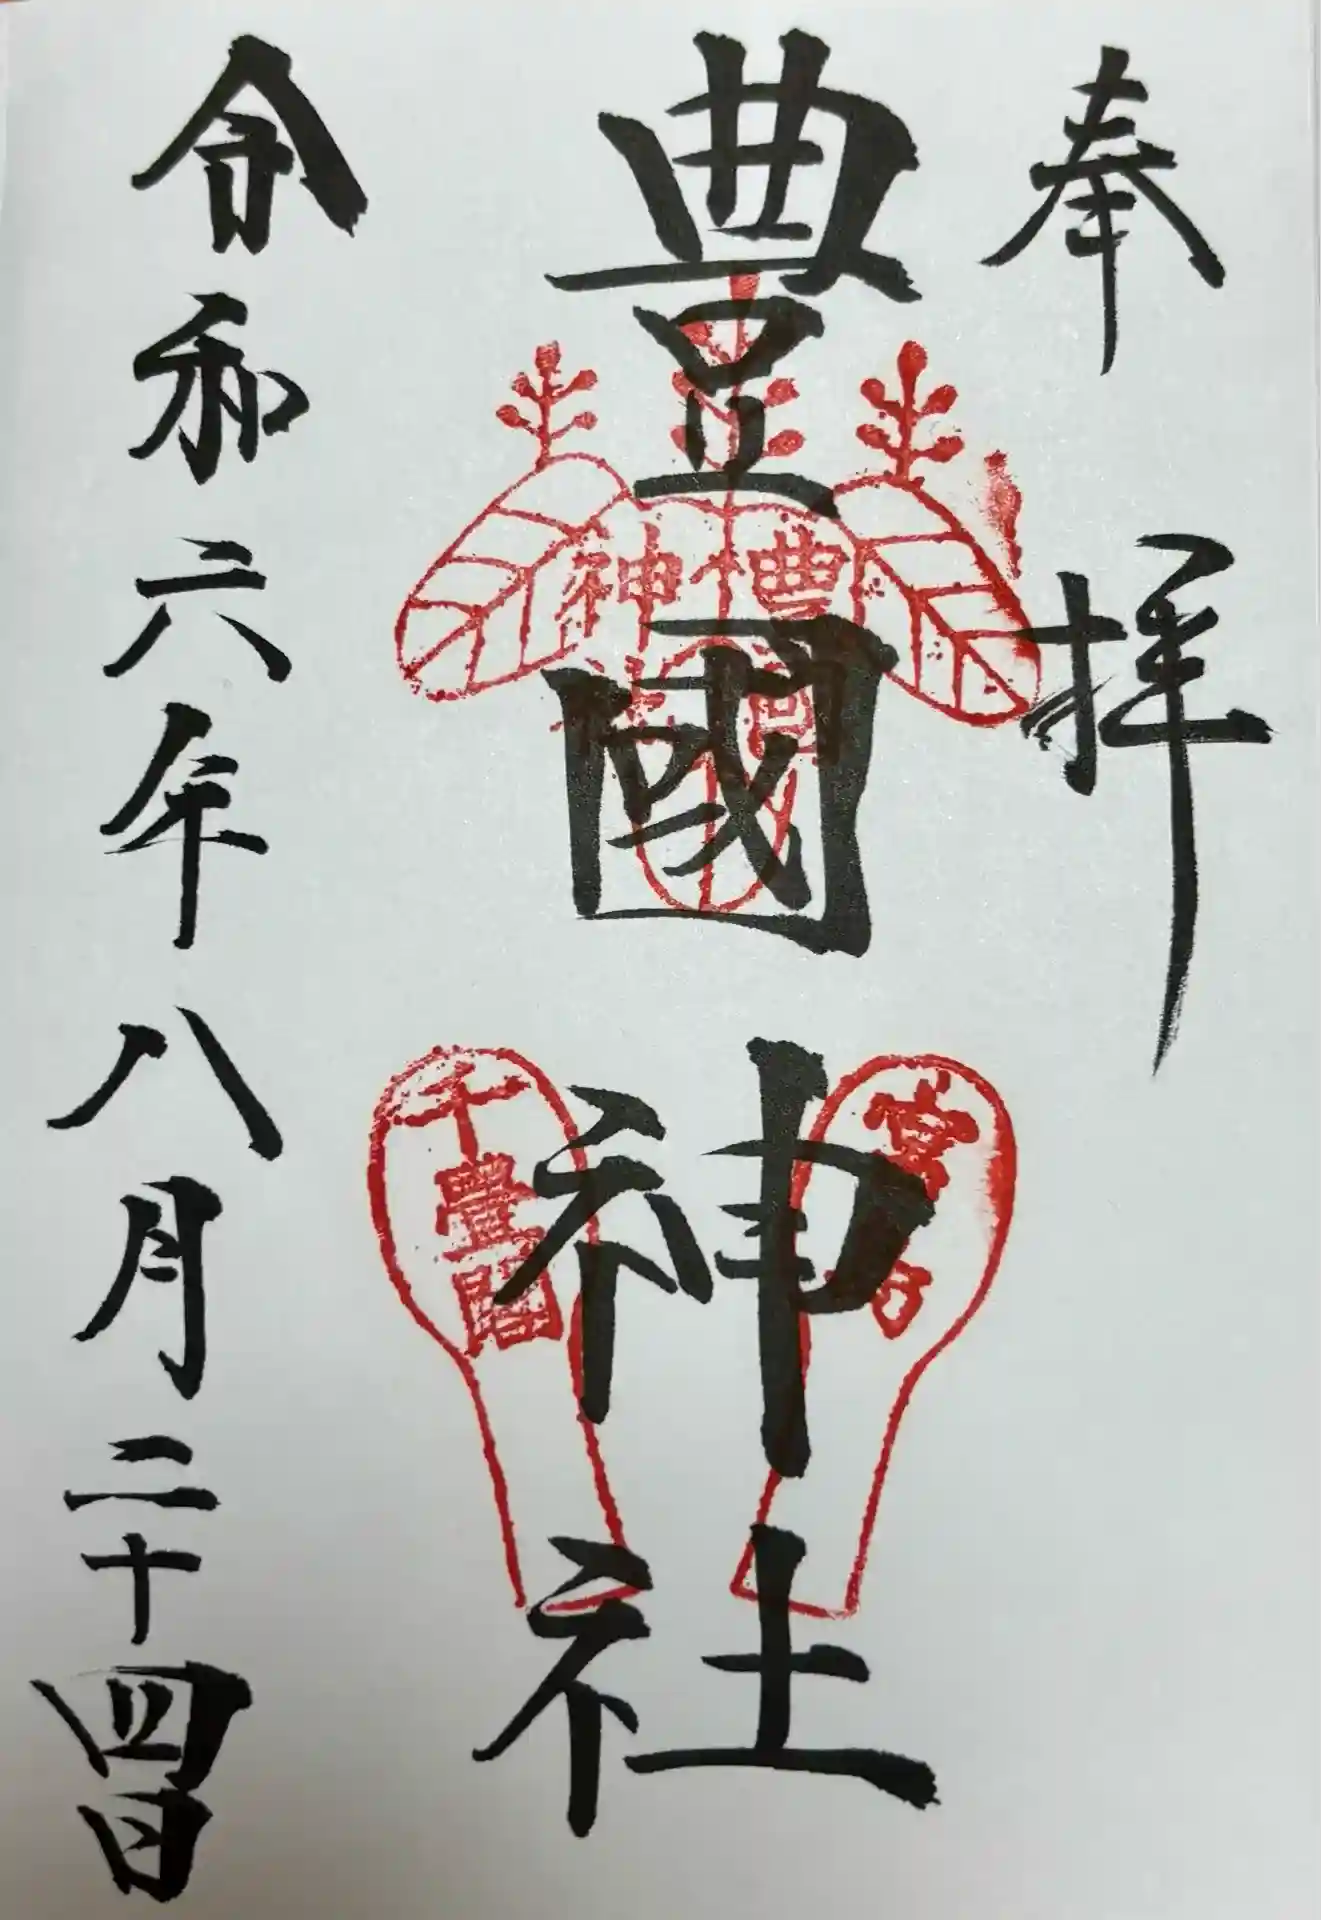 奉拝
豊國神社
豊國
神社
宮島
千畳閣
令和六年八月二十四日